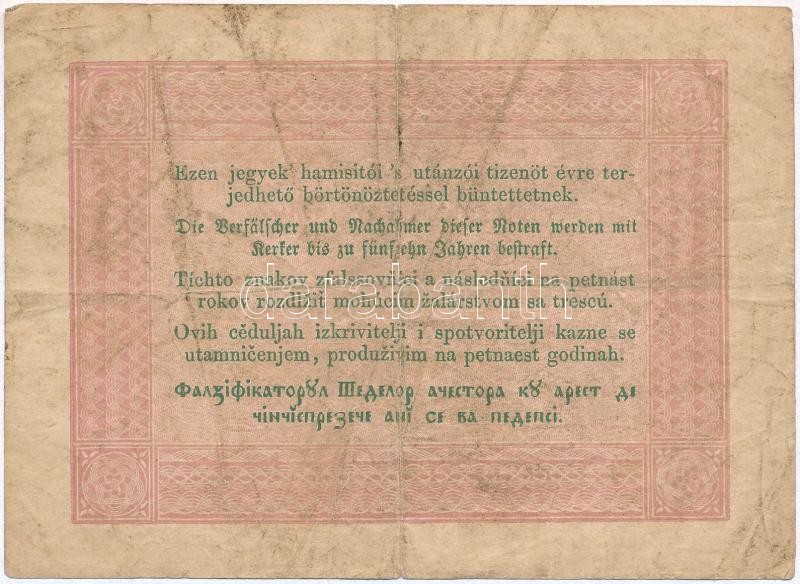 Ezen jegyek' hamisitói 's utánzói tizenöt évre ter-
jedhető börtönöztetéssel büntettetnek.
Die Verfälscher und Nachahmer dieser Noten werden mit
Kerker bis zu fünfzehn Jahren bestraft.
Tíchto znakov zfalssovitelci a násladňíci na petnást
rokov rozdlžiť mohúcim žalárstvom sa trescú.
Ovih cĕduljah izkrivitelji i spotvoritelji kazne se
utamničenjem, produživim na petnaest godinah.
Фалꙃіфікаторꙋл Шеделор ачестора кꙋ арест де
чінчіспреꙁече анї се ва педепсі.
darabanth